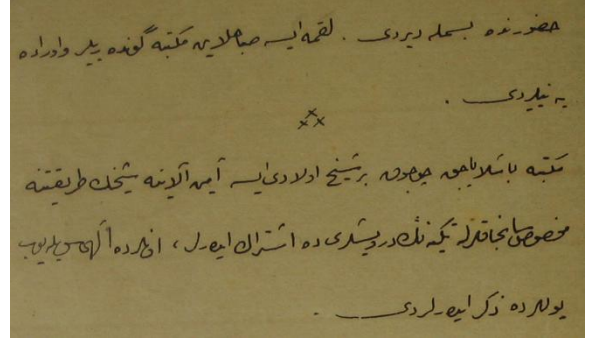 حضورنده بسمله ديردى . لقمه ايسه صباحلاين مكتبه گوندريلير واوراده
يه نيليردى .
×××
مكتبه باشلاياجق چوجوق بر شيخ اولادى ايسه آمين آلاينه شيخك طريقتنه
مخصوص سانجاقلرله تكيه نڭ درويشلرى ده اشتراك ايدرلر ، انلرده الهى سويليوب
يوللرده ذكر ايدرلردى .